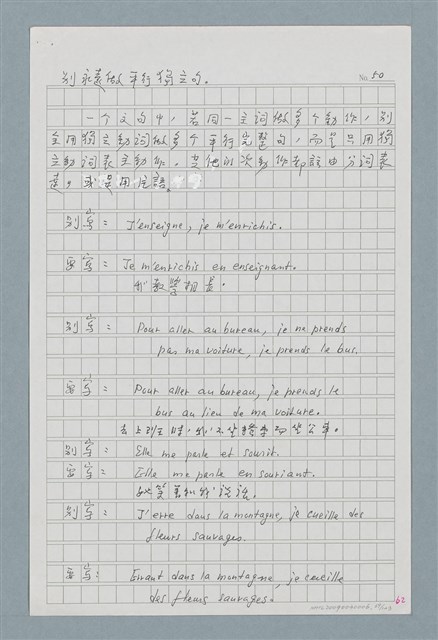 別永遠做平行獨立句。
No. 50
一个文句中，若同一主詞做多个動作，別
全用獨立動詞做多个平行完整句，而是只用獨
立動詞表主動作，其他的次動作都該由分詞表
達。或只用片語。
別寫： J'enseigne, je m'enrichis.
要寫： Je m'enrichis en enseignant.
我教學相長。
別寫： Pour aller au bureau, je ne prends
pas ma voiture, je prends le bus.
要寫： Pour aller au bureau, je prends le
bus au lieu de ma voiture.
去上班時，我不坐轎車而坐公車。
別寫： Elle me parle et sourit.
要寫： Elle me parle en souriant.
她笑着和我談話。
別寫： J'erre dans la montagne, je cueille des
fleurs sauvages.
要寫： Errant dans la montagne, je cueille
des fleurs sauvages.
62